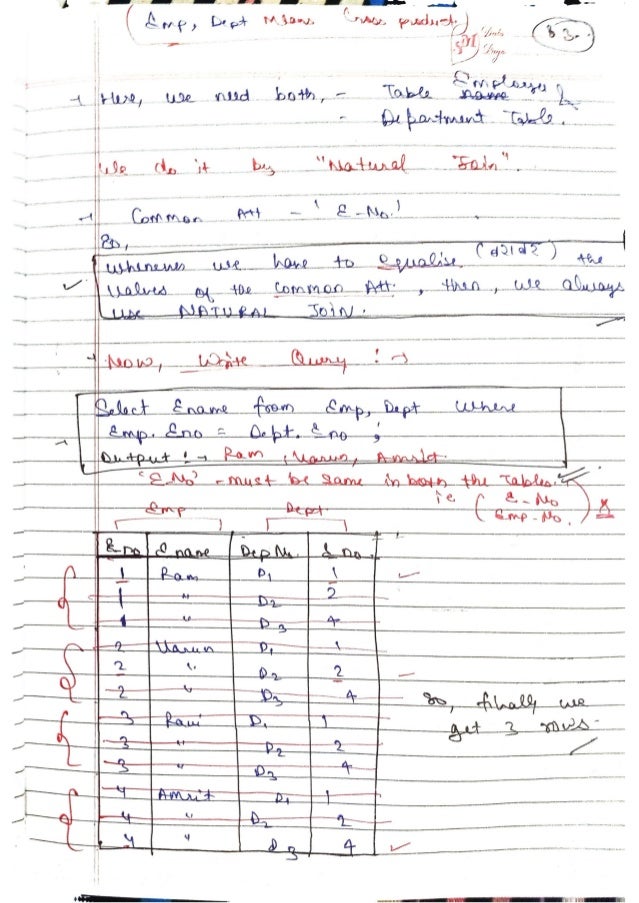 (Emp, Dept Means Cross product)
83
→ Here, we need both, - Table Employee &
- Department Table.
We do it by "Natural Join".
→ Common Att - 'E-No.'
So,
whenever we have to equalise (बराबर) the
values of the common Att. , then, we always
use NATURAL JOIN.
→ Now, Write Query :→
Select Ename from Emp, Dept where
Emp. Eno = Dept. Eno ;
Output :→ Ram, Varun, Amrit.
'E_No' - must be same in both the Tables.
ie (E-No
Emp-No.) X
Emp Dept
E no E name Dep No. E no.
1 Ram D1 1
1 " D2 2
1 " D3 4
2 Varun D1 1
2 " D2 2
2 " D3 4
3 Ravi D1 1
3 " D2 2
3 " D3 4
4 Amrit D1 1
4 " D2 2
4 " D3 4
So, finally we
get 3 rows.